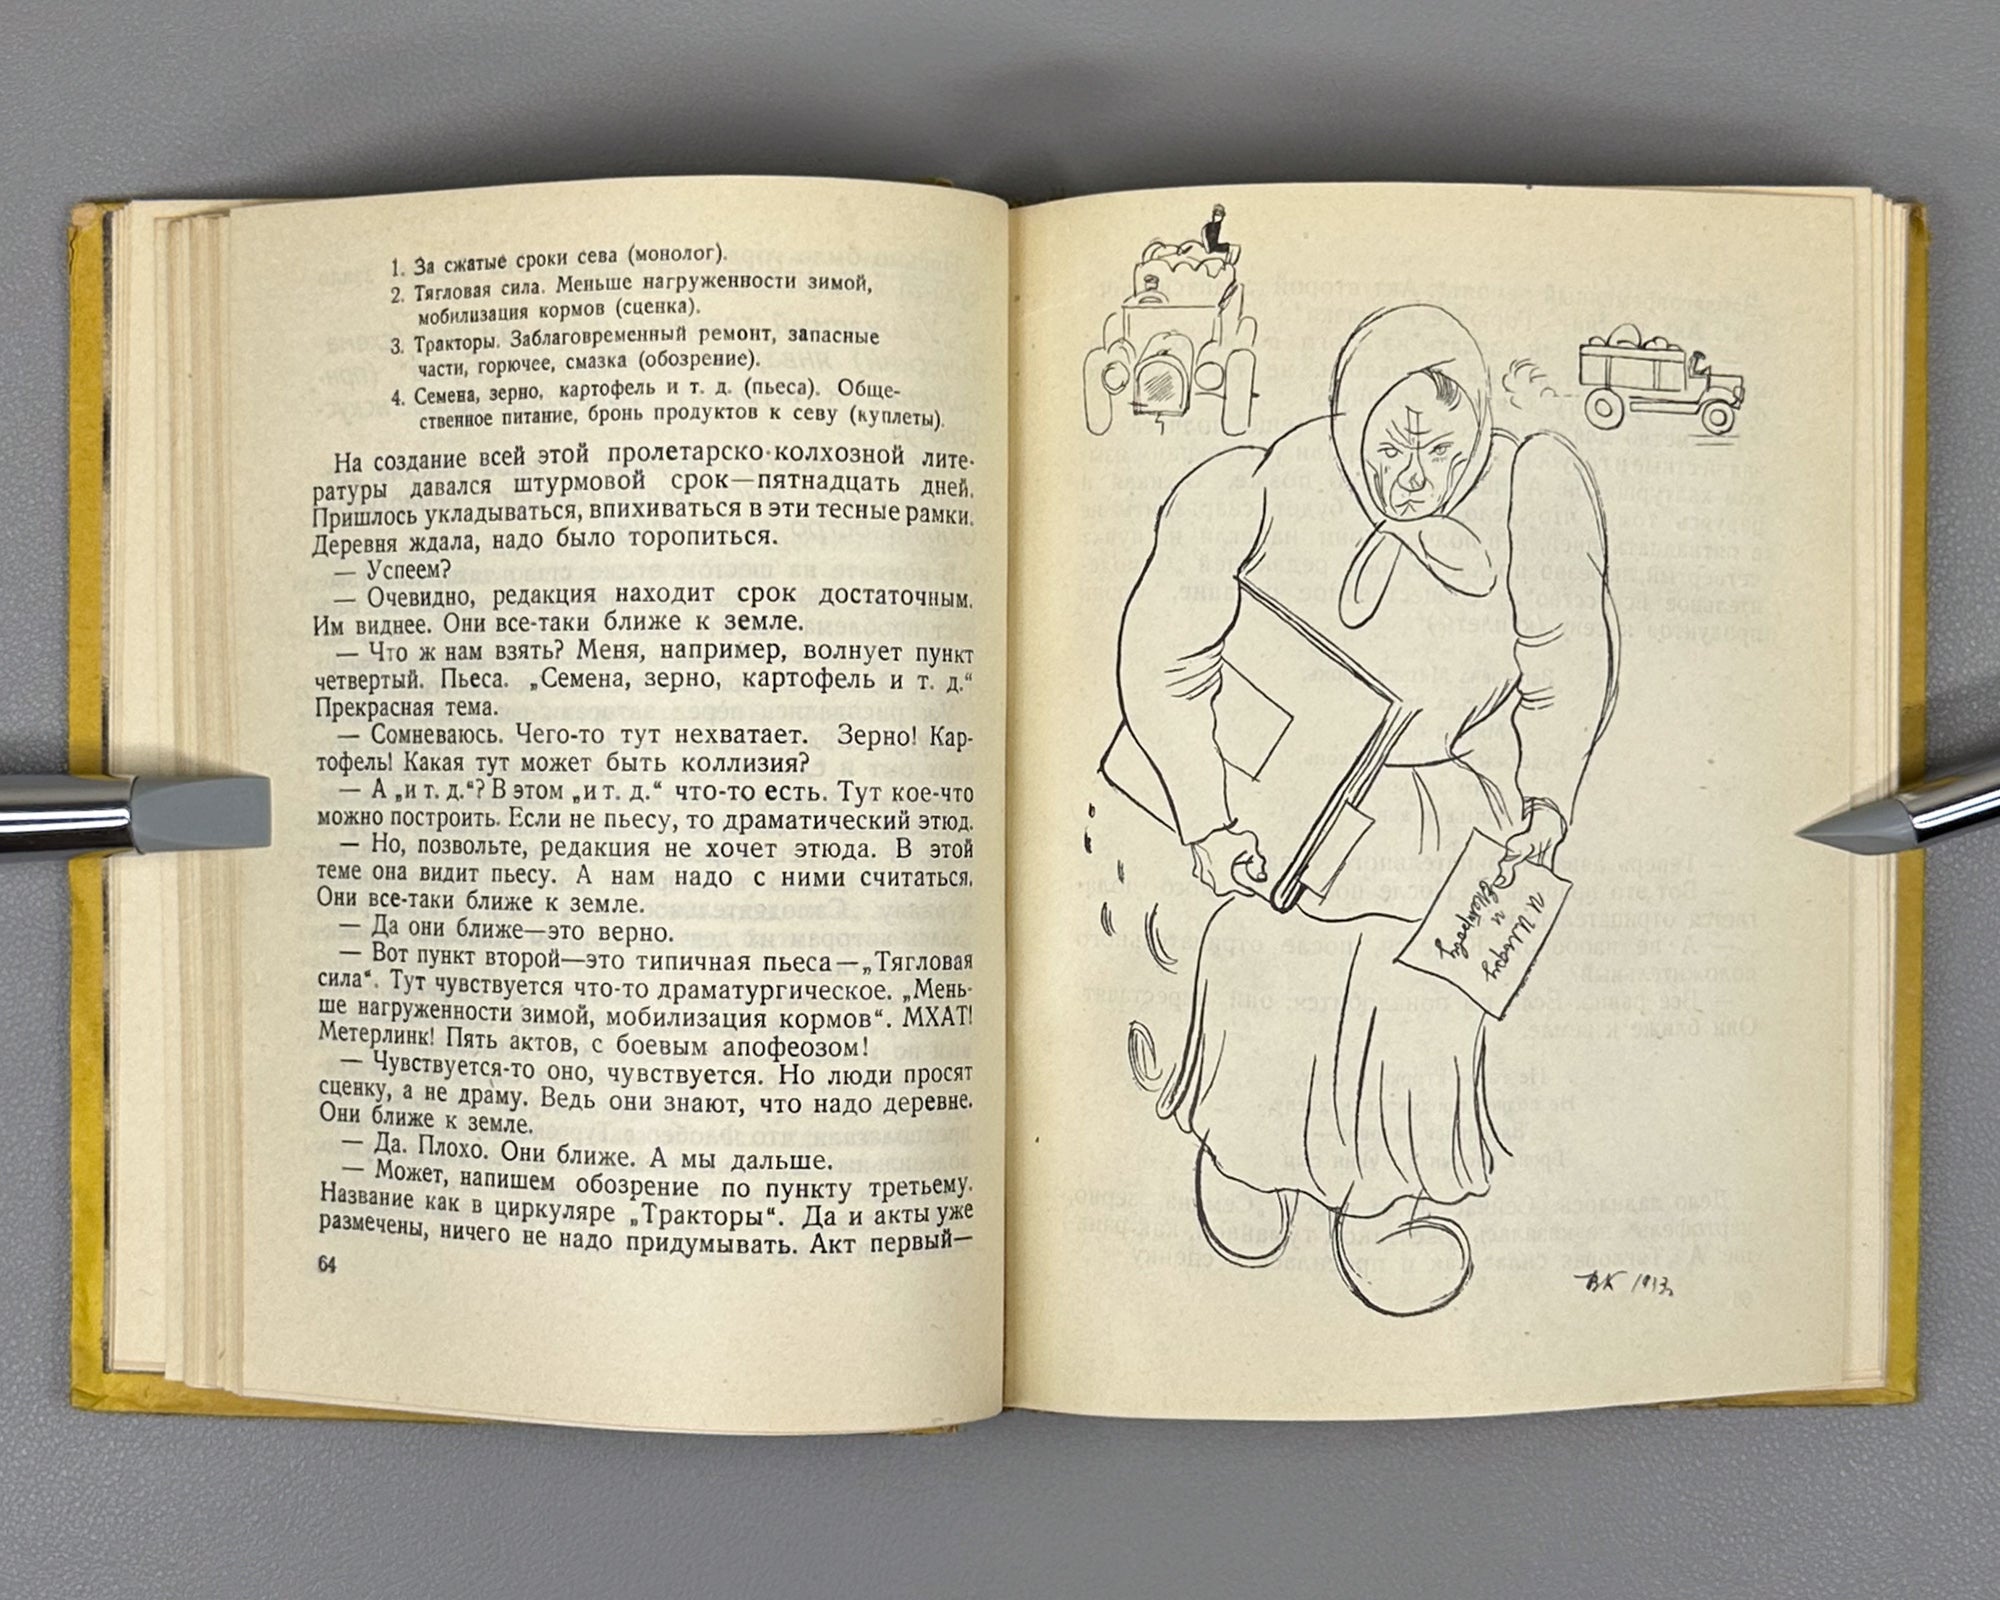 1. За сжатые сроки сева (монолог).
2. Тягловая сила. Меньше нагруженности зимой,
мобилизация кормов (сценка).
3. Тракторы. Заблаговременный ремонт, запасные
части, горючее, смазка (обозрение).
4. Семена, зерно, картофель и т. д. (пьеса). Обще-
ственное питание, бронь продуктов к севу (куплеты).
На создание всей этой пролетарско-колхозной лите-
ратуры давался штурмовой срок—пятнадцать дней.
Пришлось укладываться, впихиваться в эти тесные рамки.
Деревня ждала, надо было торопиться.
— Успеем?
— Очевидно, редакция находит срок достаточным.
Им виднее. Они все-таки ближе к земле.
— Что ж нам взять? Меня, например, волнует пункт
четвертый. Пьеса. „Семена, зерно, картофель и т. д.“
Прекрасная тема.
— Сомневаюсь. Чего-то тут нехватает. Зерно! Кар-
тофель! Какая тут может быть коллизия?
— А „и т. д.“? В этом „и т. д.“ что-то есть. Тут кое-что
можно построить. Если не пьесу, то драматический этюд.
— Но, позвольте, редакция не хочет этюда. В этой
теме она видит пьесу. А нам надо с ними считаться.
Они все-таки ближе к земле.
— Да они ближе—это верно.
— Вот пункт второй—это типичная пьеса—„Тягловая
сила“. Тут чувствуется что-то драматургическое. „Мень-
ше нагруженности зимой, мобилизация кормов“. МХАТ!
Метерлинк! Пять актов, с боевым апофеозом!
— Чувствуется-то оно, чувствуется. Но люди просят
сценку, а не драму. Ведь они знают, что надо деревне.
Они ближе к земле.
— Да. Плохо. Они ближе. А мы дальше.
— Может, напишем обозрение по пункту третьему.
Название как в циркуляре „Тракторы“. Да и акты уже
размечены, ничего не надо придумывать. Акт первый—
64
И. Ильфу
и
Е. Петрову
ВК 1933